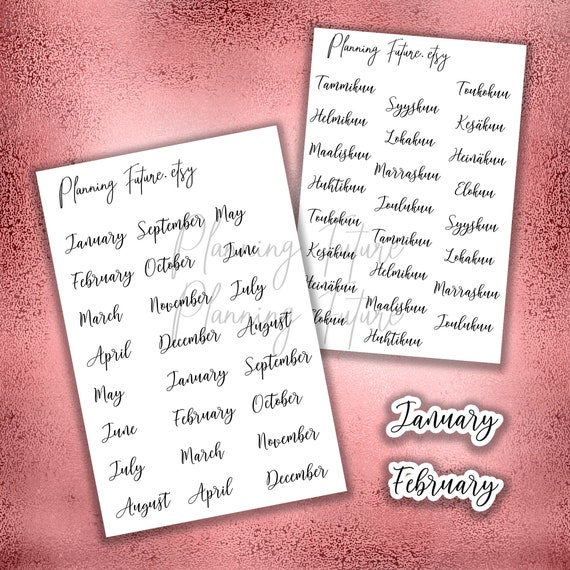 Planning Future.etsy
January
February
March
April
May
June
July
August
September
October
November
December
January
February
March
April
May
June
July
August
September
October
November
December
Planning Future.etsy
Tammikuu
Helmikuu
Maaliskuu
Huhtikuu
Toukokuu
Kesäkuu
Heinäkuu
Elokuu
Syyskuu
Lokakuu
Marraskuu
Joulukuu
Tammikuu
Helmikuu
Maaliskuu
Huhtikuu
Toukokuu
Kesäkuu
Heinäkuu
Elokuu
Syyskuu
Lokakuu
Marraskuu
Joulukuu
Planning Future
Planning Future
January
February